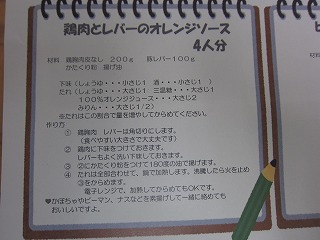 鶏肉とレバーのオレンジソース
4人分
材料 鶏胸肉皮なし 200g 豚レバー100g
かたくり粉 揚げ油
下味(しょうゆ・・・小さじ1 酒・・・小さじ1 )
たれ(しょうゆ・・・大さじ1 三温糖・・・大さじ1
100%オレンジジュース・・・大さじ2
みりん・・・大さじ1/2)
※たれはこの割合で量を増やしてからめてください。
作り方
① 鶏胸肉 レバーは角切りにします。
(食べやすい大きさで大丈夫です)
② 鶏肉に下味をつけておきます。
レバーもよく洗い下味しておきます。
③ ②にかたくり粉をつけて180度の油で揚げます。
④ たれは全部合わせて、鍋で加熱します。沸騰したら火を止め
③をからめます。
電子レンジで、加熱してからめてもOKです。
♥かぼちゃやピーマン、ナスなどを素揚げして一緒に絡めても
おいしいですよ。